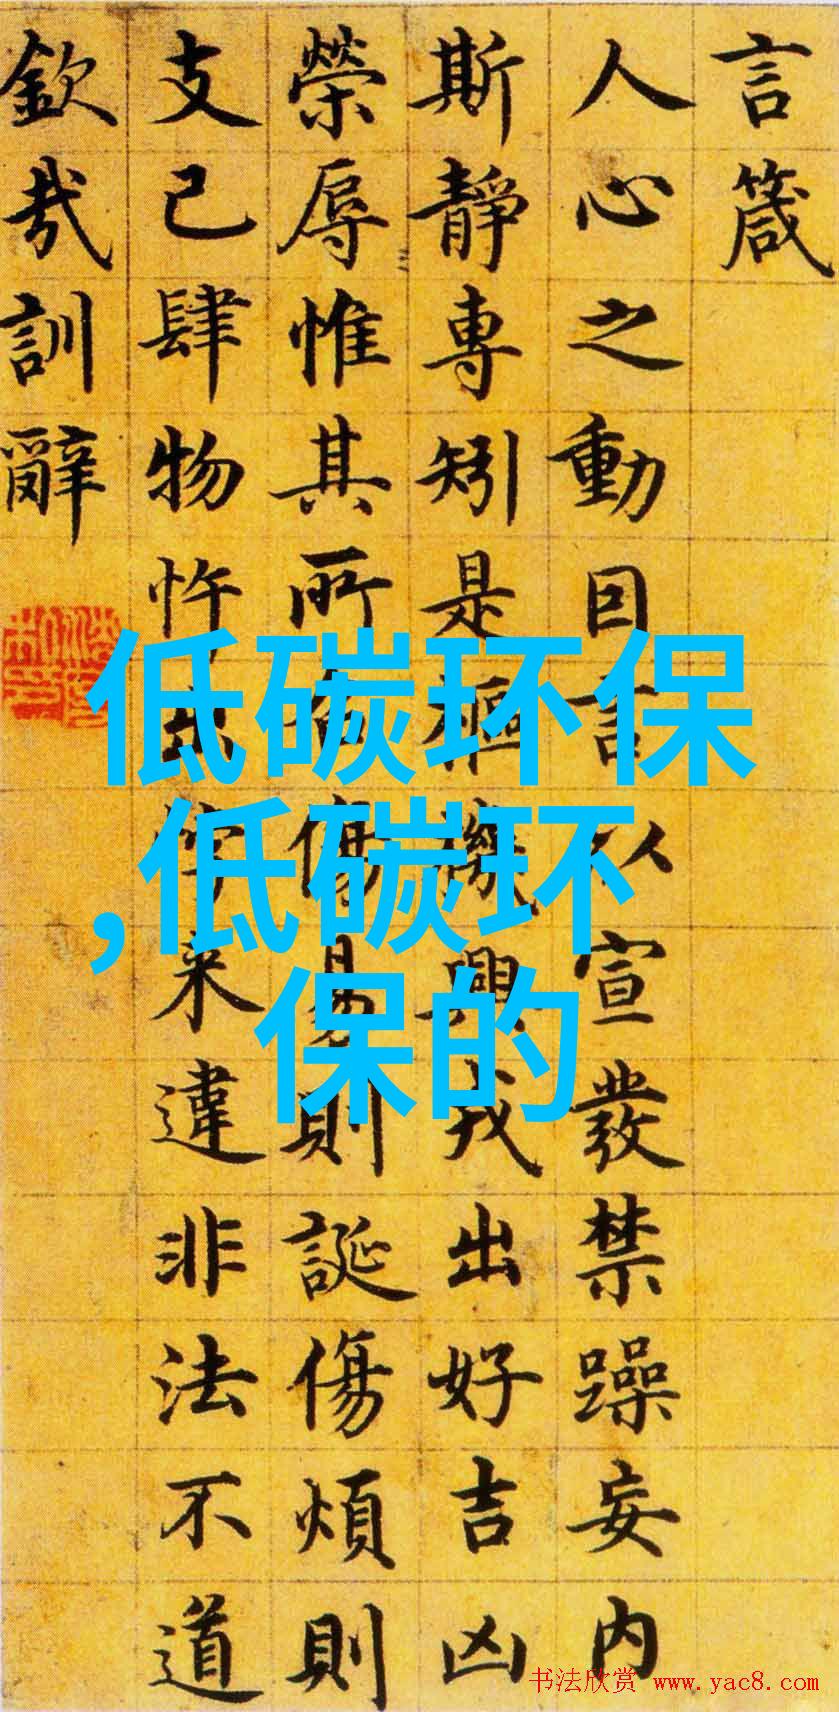 言箴
人心之動因言以宣發禁躁妄内
斯靜專矧是樞機興戎出好吉凶
榮辱惟其所召傷易則誕傷煩則
支己肆物忤出悖来違非法不道
欽哉訓辭
低碳环保
,低碳环
保的
书法欣赏 www.yac8.com